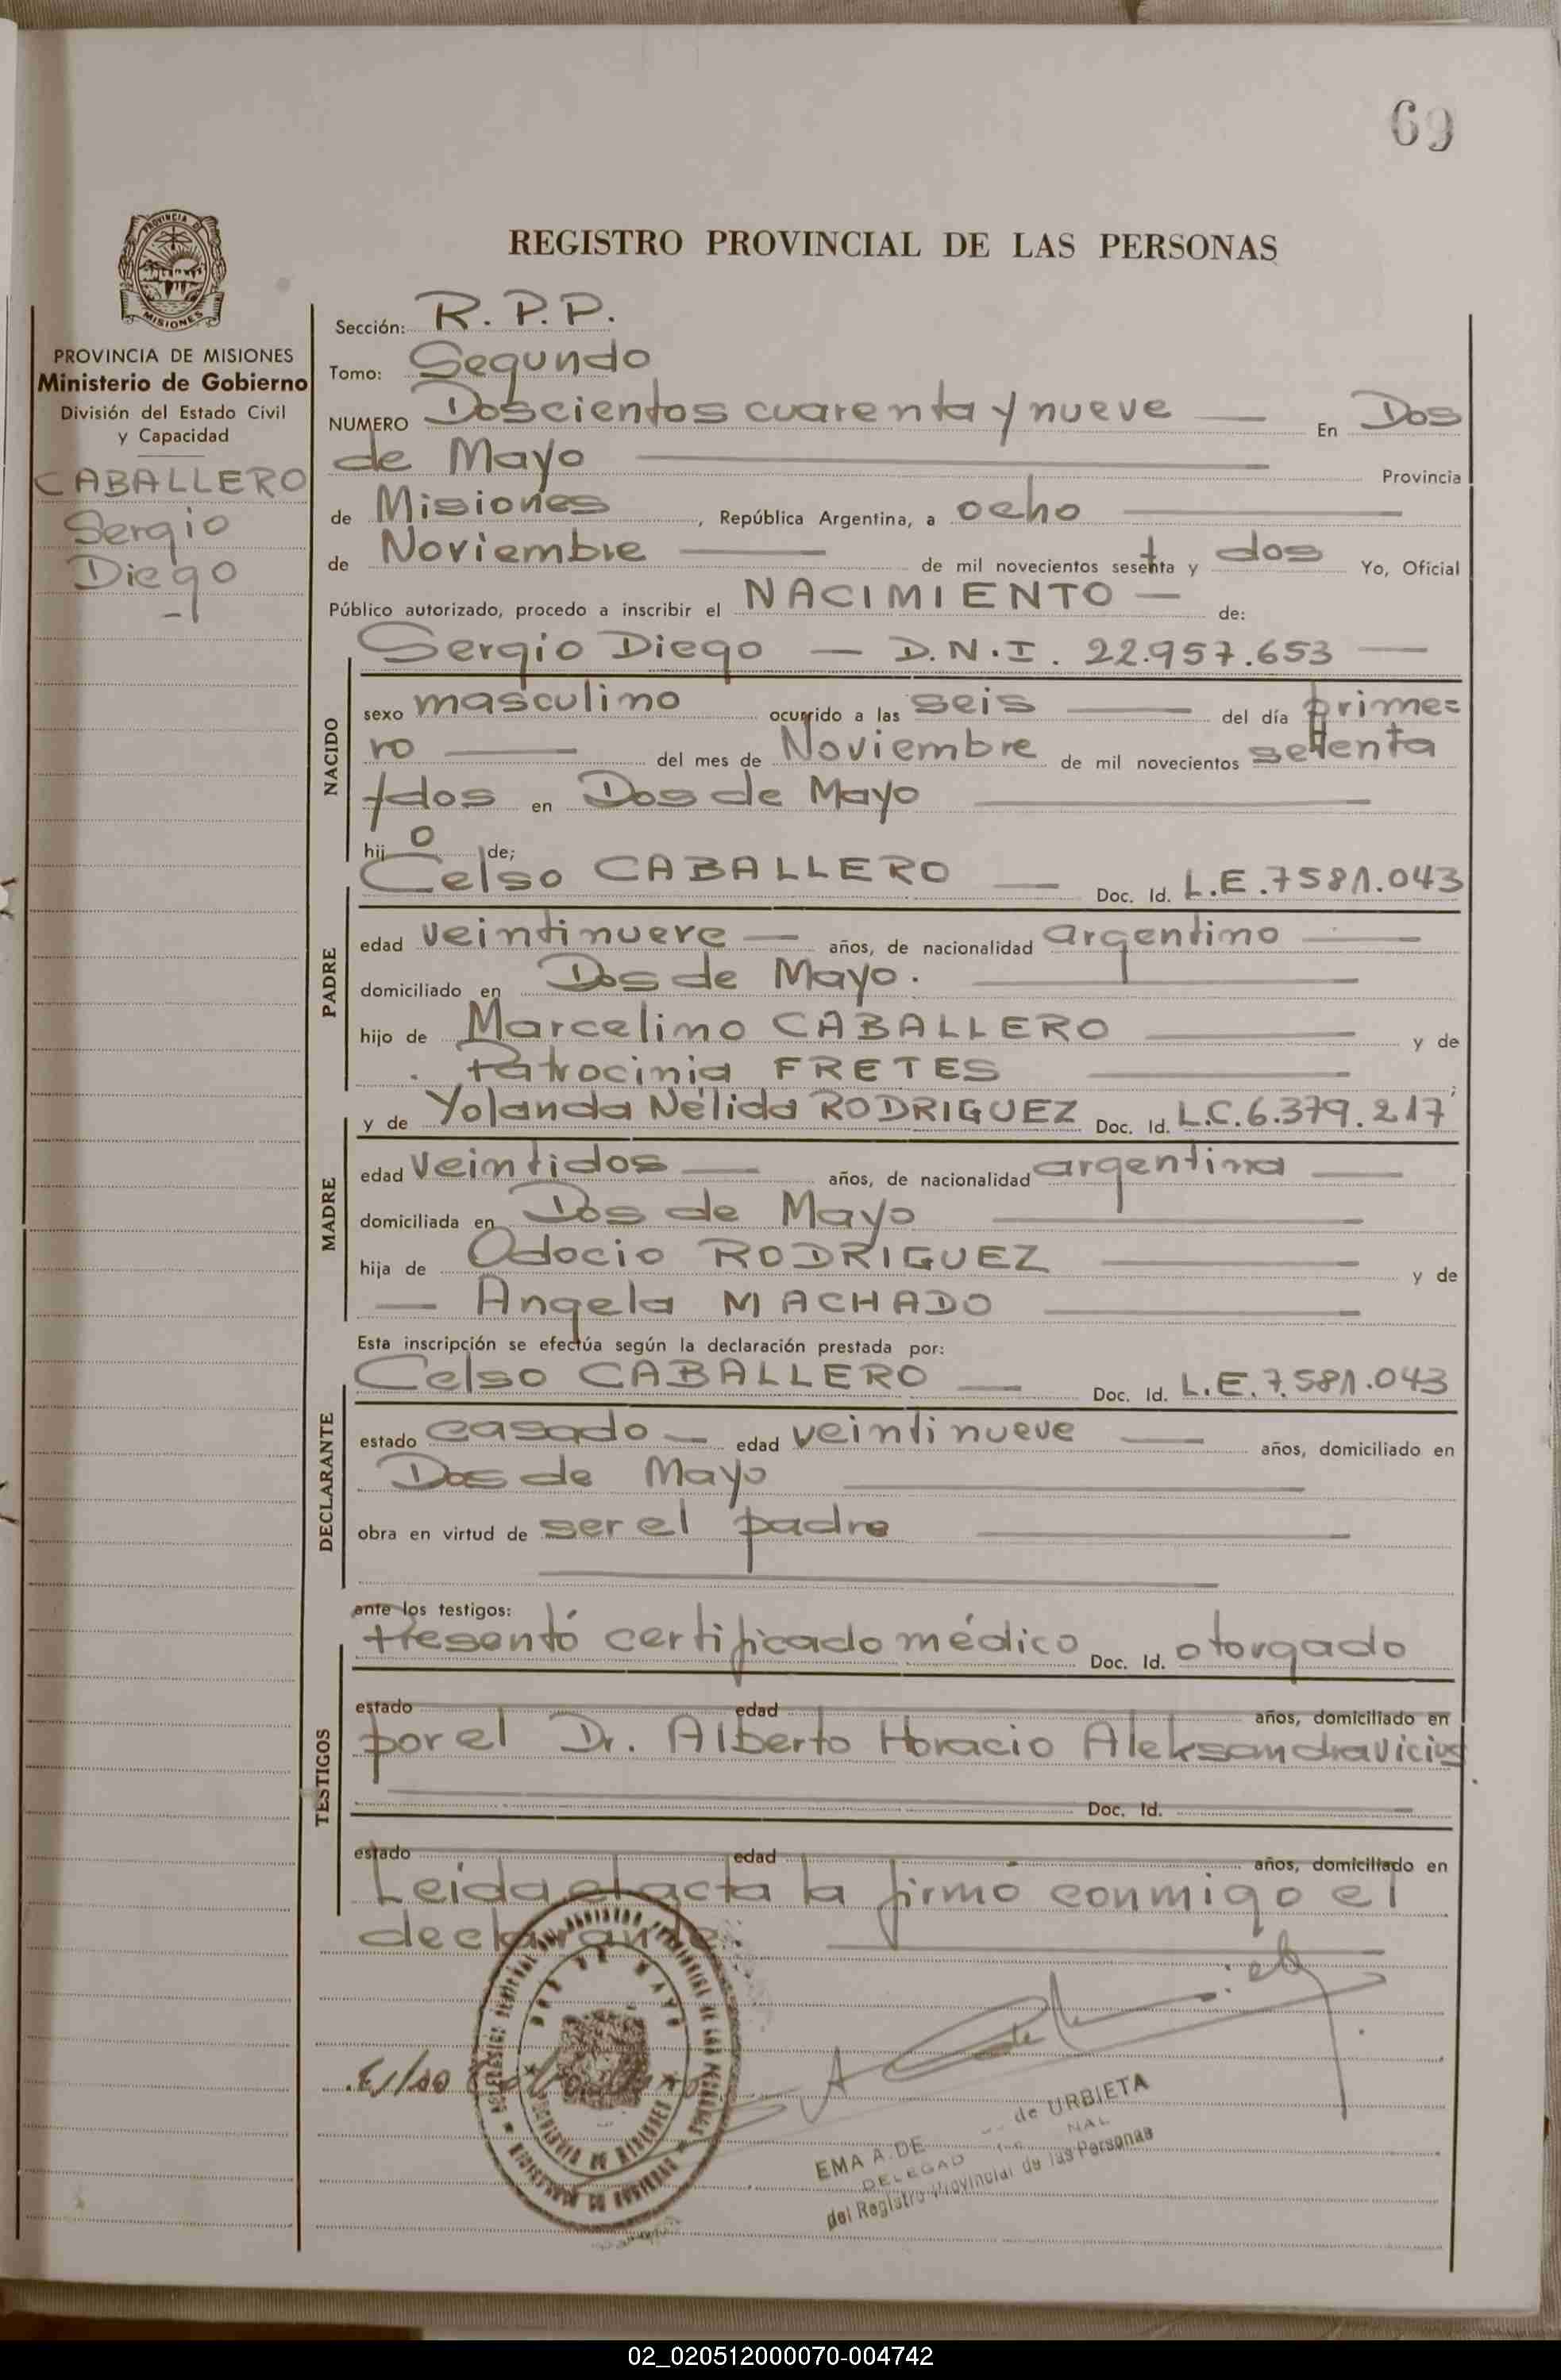 69
REGISTRO PROVINCIAL DE LAS PERSONAS
PROVINCIA DE
MISIONES
PROVINCIA DE MISIONES
Ministerio de Gobierno
División del Estado Civil
y Capacidad
CABALLERO
Sergio
Diego
Sección: R. P. P.
Tomo: Segundo
NUMERO Doscientos cuarenta y nueve — En Dos
de Mayo — Provincia
de Misiones, República Argentina, a ocho —
de Noviembre — de mil novecientos setenta y dos Yo, Oficial
Público autorizado, procedo a inscribir el NACIMIENTO — de:
Sergio Diego — D.N.I. 22.957.653 —
NACIDO
sexo masculino ocurrido a las seis — del día prime=
ro — del mes de Noviembre de mil novecientos setenta
y dos en Dos de Mayo —
hijo de;
Celso CABALLERO — Doc. Id. L.E.7581.043
PADRE
edad veintinueve — años, de nacionalidad argentino —
domiciliado en Dos de Mayo. —
hijo de Marcelino CABALLERO — y de
Patrocinia FRETES —
y de Yolanda Nélida RODRIGUEZ Doc. Id. L.C.6.379.217
MADRE
edad veintidos — años, de nacionalidad argentina —
domiciliada en Dos de Mayo —
hija de Odocio RODRIGUEZ — y de
— Angela MACHADO —
Esta inscripción se efectúa según la declaración prestada por:
Celso CABALLERO — Doc. Id. L.E.7.581.043
DECLARANTE
estado casado — edad veintinueve — años, domiciliado en
Dos de Mayo —
obra en virtud de ser el padre —
ante los testigos:
Presentó certificado médico Doc. Id. otorgado
TESTIGOS
estado edad años, domiciliado en
por el Dr. Alberto Horacio Aleksandravicius
Doc. Id.
estado edad años, domiciliado en
Leida el acta la firmó conmigo el
declarante. —
DOS DE MAYO
PROVINCIA DE MISIONES
MINISTERIO DE GOBIERNO
EMA A. DE de URBIETA
del Registro Provincial de las Personas
02_020512000070-004742